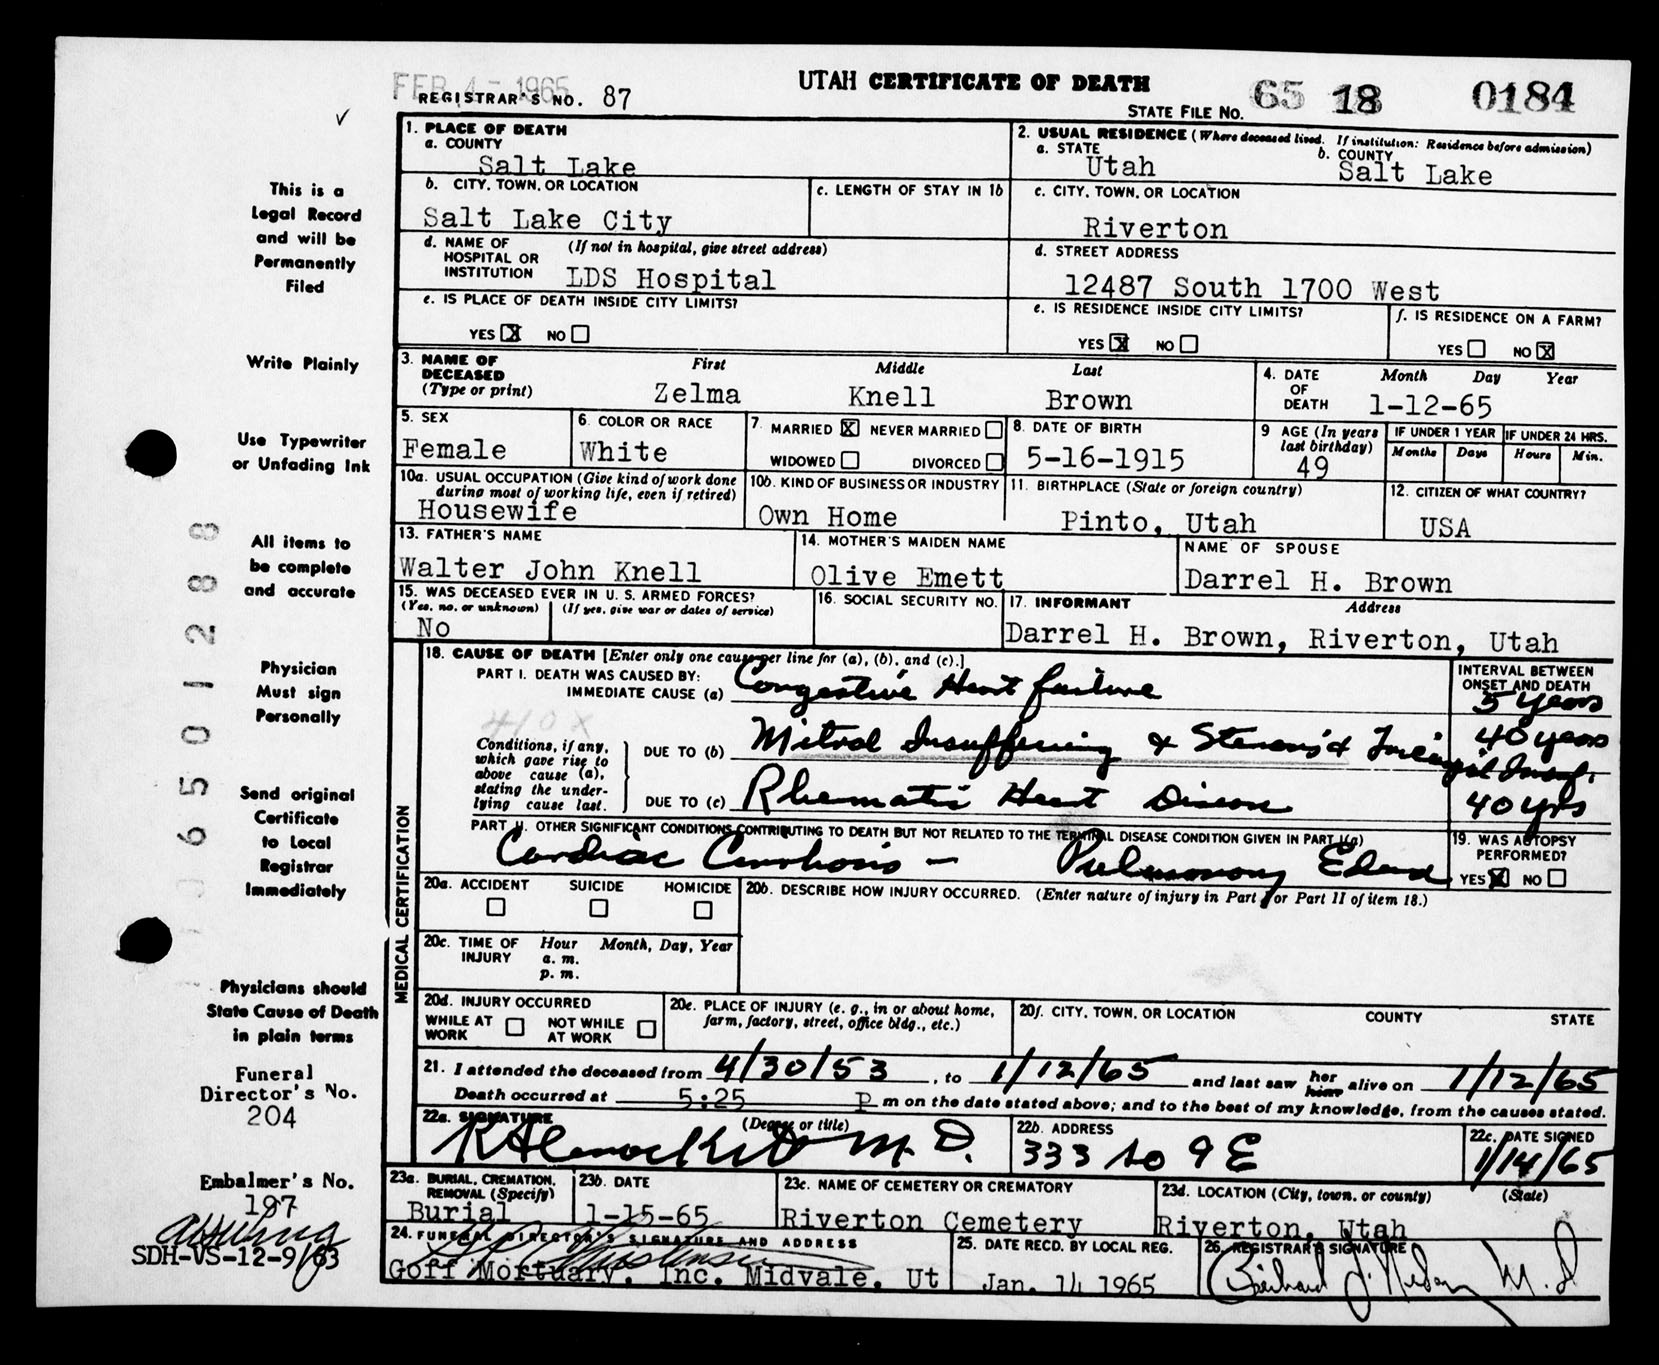 FEB 4 - 1965
UTAH CERTIFICATE OF DEATH
REGISTRAR'S NO. 87
STATE FILE NO. 65 18 0184
1. PLACE OF DEATH
a. COUNTY
Salt Lake
2. USUAL RESIDENCE (Where deceased lived. If institution: Residence before admission)
a. STATE
Utah
b. COUNTY
Salt Lake
b. CITY, TOWN, OR LOCATION
Salt Lake City
c. LENGTH OF STAY IN 1b
c. CITY, TOWN, OR LOCATION
Riverton
d. NAME OF HOSPITAL OR INSTITUTION
(If not in hospital, give street address)
LDS Hospital
d. STREET ADDRESS
12487 South 1700 West
e. IS PLACE OF DEATH INSIDE CITY LIMITS?
YES X NO
e. IS RESIDENCE INSIDE CITY LIMITS?
YES X NO
f. IS RESIDENCE ON A FARM?
YES NO X
3. NAME OF DECEASED
(Type or print)
First Middle Last
Zelma Knell Brown
4. DATE OF DEATH
Month Day Year
1-12-65
5. SEX
Female
6. COLOR OR RACE
White
7. MARRIED X NEVER MARRIED
WIDOWED DIVORCED
8. DATE OF BIRTH
5-16-1915
9 AGE (In years last birthday)
49
IF UNDER 1 YEAR
Months Days
IF UNDER 24 HRS.
Hours Min.
10a. USUAL OCCUPATION (Give kind of work done during most of working life, even if retired)
Housewife
10b. KIND OF BUSINESS OR INDUSTRY
Own Home
11. BIRTHPLACE (State or foreign country)
Pinto, Utah
12. CITIZEN OF WHAT COUNTRY?
USA
13. FATHER'S NAME
Walter John Knell
14. MOTHER'S MAIDEN NAME
Olive Emett
NAME OF SPOUSE
Darrel H. Brown
15. WAS DECEASED EVER IN U. S. ARMED FORCES?
(Yes, no, or unknown) (If yes, give war or dates of service)
No
16. SOCIAL SECURITY NO.
17. INFORMANT Address
Darrel H. Brown, Riverton, Utah
MEDICAL CERTIFICATION
18. CAUSE OF DEATH [Enter only one cause per line for (a), (b), and (c).]
INTERVAL BETWEEN ONSET AND DEATH
PART I. DEATH WAS CAUSED BY:
IMMEDIATE CAUSE (a) Congestive Heart failure
5 years
410X
Conditions, if any, which gave rise to above cause (a), stating the underlying cause last.
DUE TO (b) Mitral Insufficiency & Stenosis & Tricuspid Insuf.
40 years
DUE TO (c) Rheumatic Heart Disease
40 yrs
PART II. OTHER SIGNIFICANT CONDITIONS CONTRIBUTING TO DEATH BUT NOT RELATED TO THE TERMINAL DISEASE CONDITION GIVEN IN PART I(a)
Cardiac Cirrhosis - Pulmonary Edema
19. WAS AUTOPSY PERFORMED?
YES X NO
20a. ACCIDENT SUICIDE HOMICIDE
20b. DESCRIBE HOW INJURY OCCURRED. (Enter nature of injury in Part I or Part II of item 18.)
20c. TIME OF INJURY
Hour Month, Day, Year
a. m.
p. m.
20d. INJURY OCCURRED
WHILE AT WORK NOT WHILE AT WORK
20e. PLACE OF INJURY (e. g., in or about home, farm, factory, street, office bldg., etc.)
20f. CITY, TOWN, OR LOCATION COUNTY STATE
21. I attended the deceased from 4/30/53, to 1/12/65 and last saw her him alive on 1/12/65
Death occurred at 5:25 P m on the date stated above; and to the best of my knowledge, from the causes stated.
22a. SIGNATURE (Degree or title)
M. D.
22b. ADDRESS
333 So 9 E
22c. DATE SIGNED
1/14/65
23a. BURIAL, CREMATION, REMOVAL (Specify)
Burial
23b. DATE
1-15-65
23c. NAME OF CEMETERY OR CREMATORY
Riverton Cemetery
23d. LOCATION (City, town, or county) (State)
Riverton, Utah
24. FUNERAL DIRECTOR'S SIGNATURE AND ADDRESS
Goff Mortuary, Inc. Midvale, Ut
25. DATE RECD. BY LOCAL REG.
Jan. 14 1965
26. REGISTRAR'S SIGNATURE
M. D
This is a
Legal Record
and will be
Permanently
Filed
Write Plainly
Use Typewriter
or Unfading Ink
All items to
be complete
and accurate
Physician
Must sign
Personally
Send original
Certificate
to Local
Registrar
Immediately
Physicians should
State Cause of Death
in plain terms
Funeral
Director's No.
204
Embalmer's No.
197
SDH-VS-12-9/63